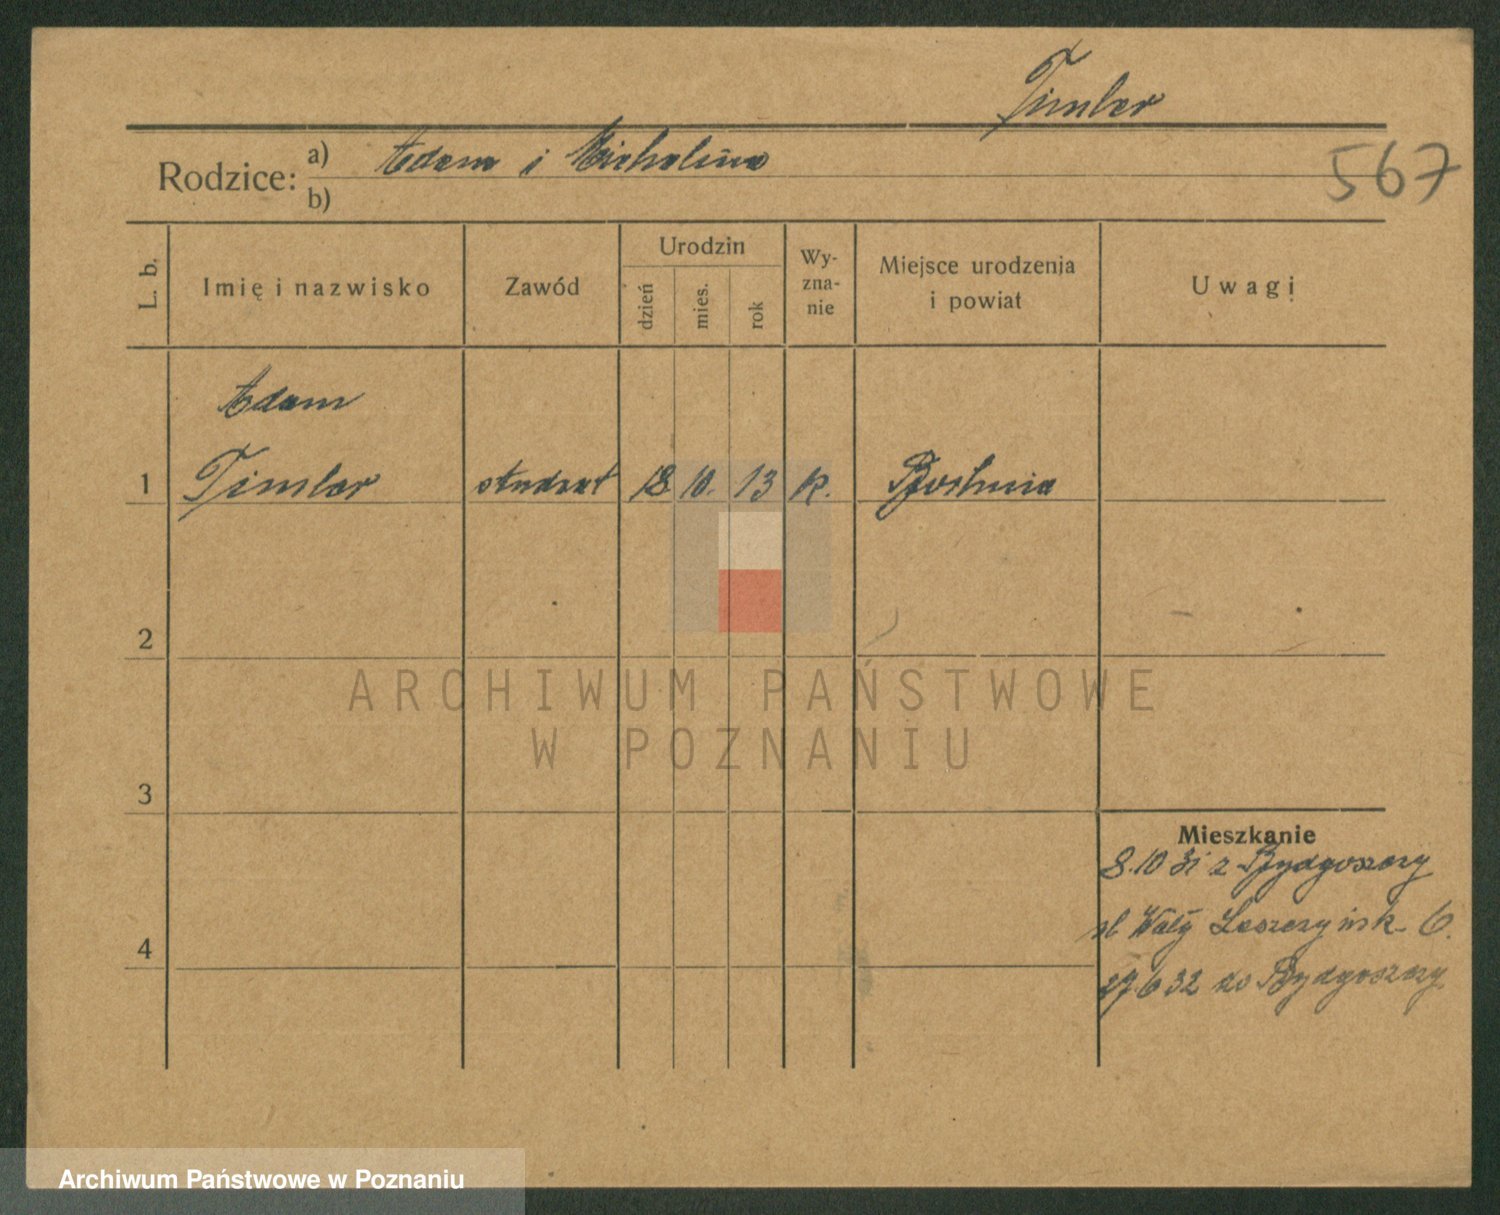 Timler
567
Rodzice: a) Adam i Michalina
b)
L. b. Imię i nazwisko Zawód Urodzin dzień mies. rok Wy-zna-nie Miejsce urodzenia i powiat Uwagi
Adam
1 Timler student 18 10. 13 k. Bochnia
2
ARCHIWUM PAŃSTWOWE
W POZNANIU
3
Mieszkanie
8.10 31 z Bydgoszczy
ul Wały Leszczyńsk- 6.
4
27.6 32 do Bydgoszczy
Archiwum Państwowe w Poznaniu